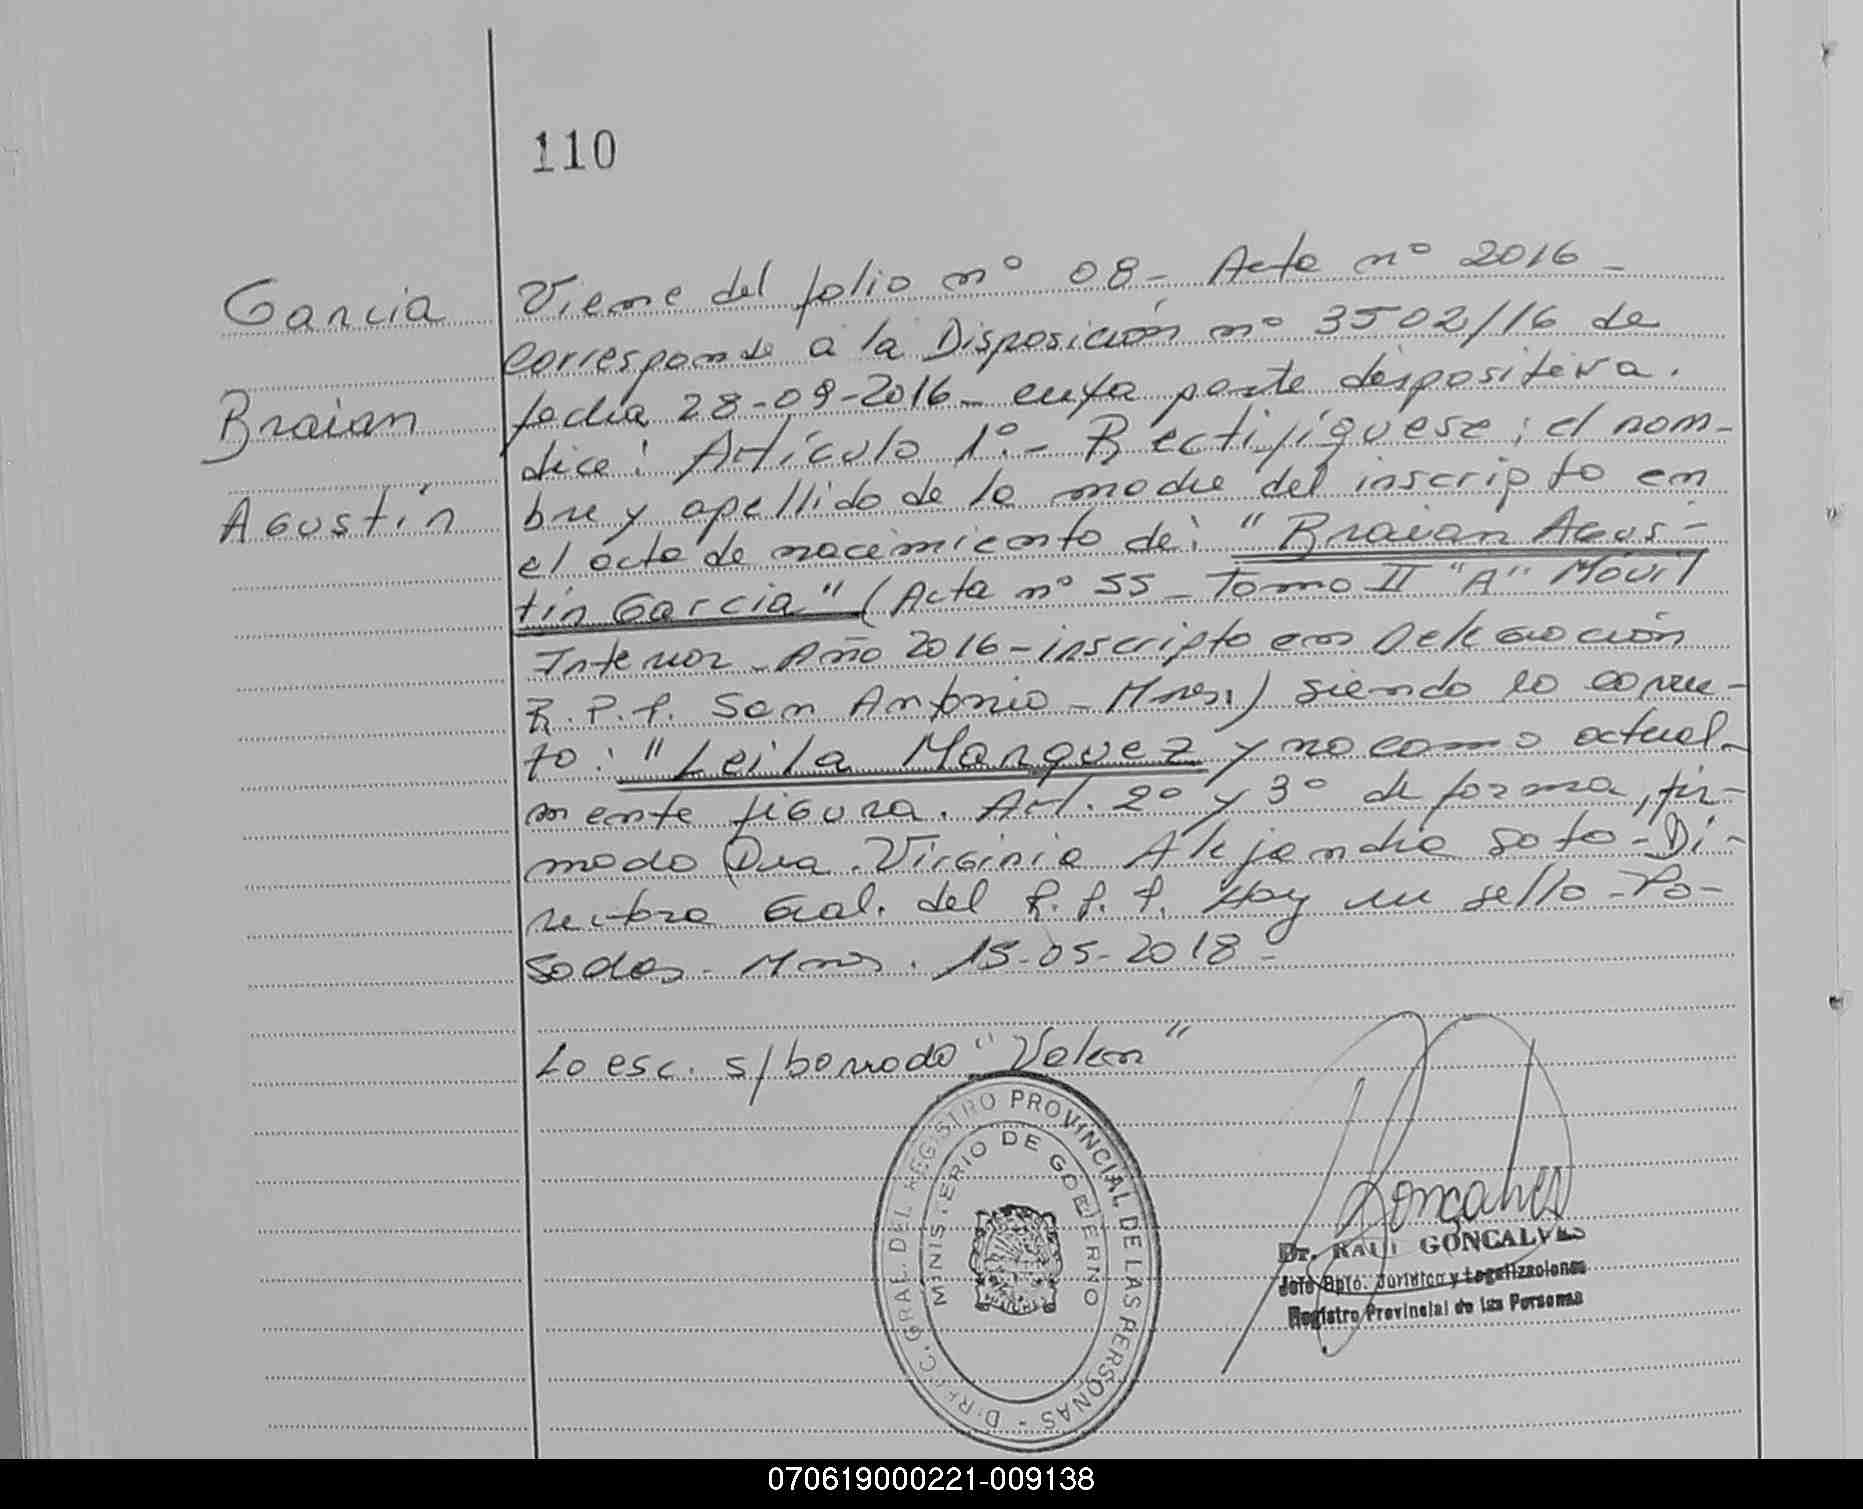 110
Garcia
Braian
Agustín
Viene del folio nº 08- Acta nº 2016-
Corresponde a la Disposición nº 3502/16 de
fecha 28-09-2016- cuya parte dispositiva.
dice: Artículo 1º.- Rectifíquese; el nom-
bre y apellido de la madre del inscripto en
el acta de nacimiento de: "Braian Agus-
tín Garcia" (Acta nº 55- Tomo II "A" Móvil
Interior- Año 2016- inscripto en Delegación
R.P.P. San Antonio- Mnes.) siendo lo correc-
to: "Leila Marquez y no como actual-
mente figura. Art. 2º y 3º de forma, fir-
mado Dra. Virginia Alejandra Soto- Di-
rectora Gral. del R.P.P. Hay un sello- Po-
sadas- Mnes. 15-05-2018-
Lo esc. s/borrado "Valen"
DIRECC. GRAL. DEL REGISTRO PROVINCIAL DE LAS PERSONAS -
MINISTERIO DE GOBIERNO
Goncalves
Dr. RAUL GONCALVES
Jefe Dpto. Jurídico y Legalizaciones
Registro Provincial de las Personas
070619000221-009138